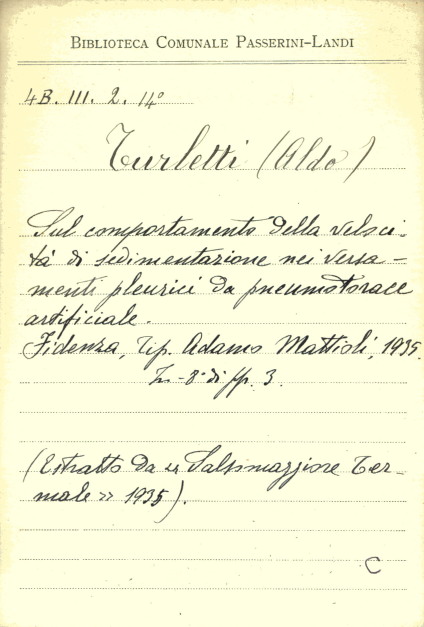 BIBLIOTECA COMUNALE PASSERINI-LANDI
4B. III. 2. 14°
Turletti (Aldo)
Sul comportamento della veloci-
tà di sedimentazione nei versa-
menti pleurici da pneumotorace
artificiale.
Fidenza, Tip. Adamo Mattioli, 1935.
In-8° di pp. 3.
(Estratto da « Salsomaggiore Ter-
male » 1935).
C